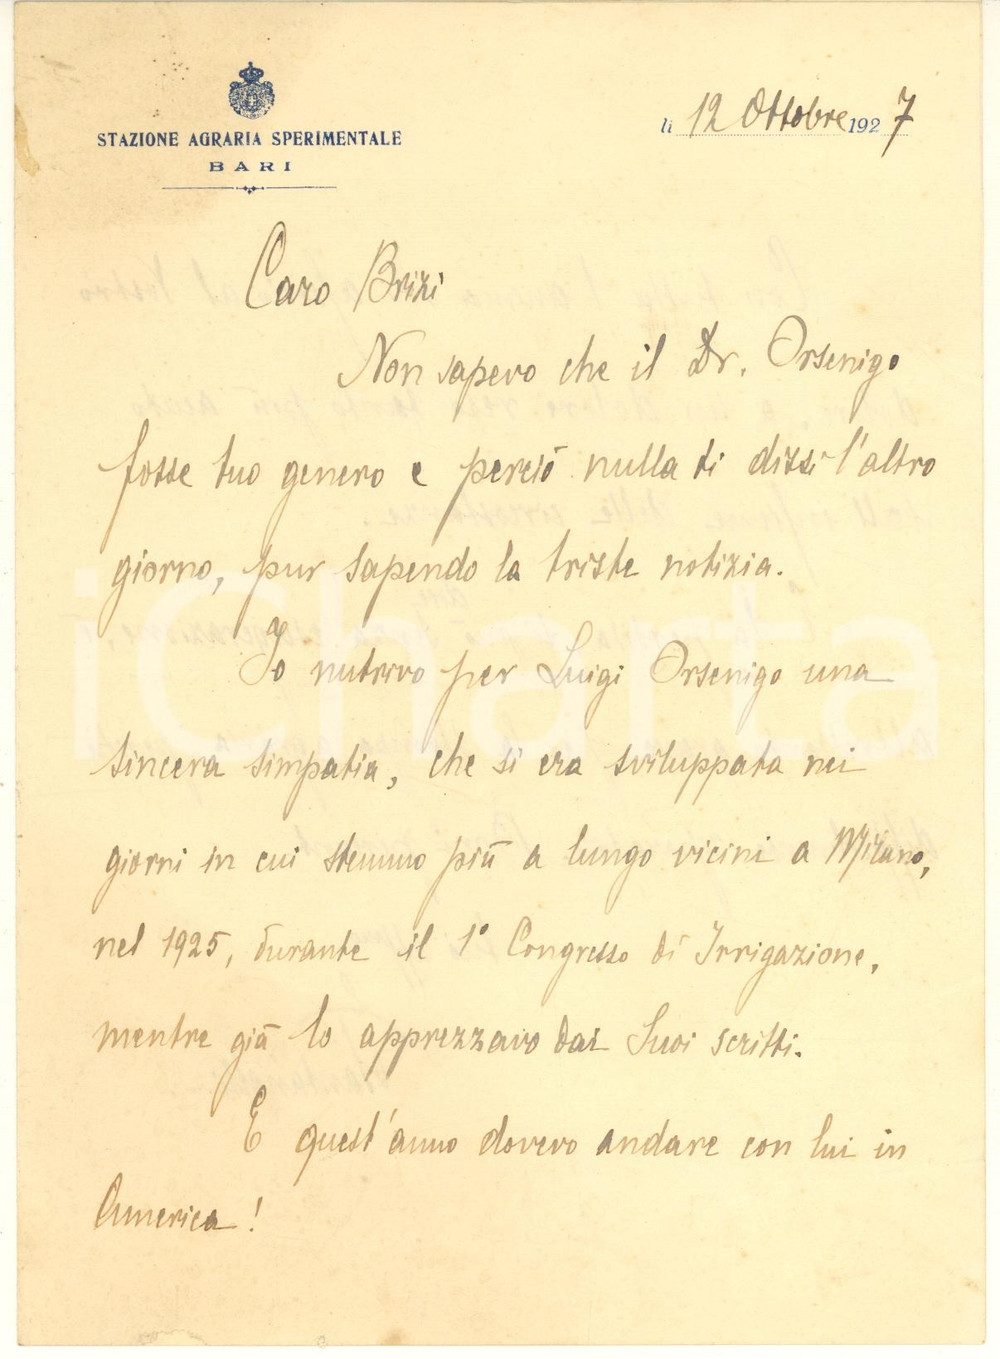 STAZIONE AGRARIA SPERIMENTALE
BARI
li 12 Ottobre 1927
Caro Brizi
Non sapevo che il Dr. Orsenigo
fosse tuo genero e perciò nulla ti dissi l'altro
giorno, pur sapendo la triste notizia.
Io nutrivo per Luigi Orsenigo una
sincera simpatia, che si era sviluppata nei
giorni in cui stemmo più a lungo vicini a Milano,
nel 1925, durante il 1° Congresso di Irrigazione,
mentre già lo apprezzavo dai Suoi scritti.
E quest'anno dovevo andare con lui in
America!
iCharta